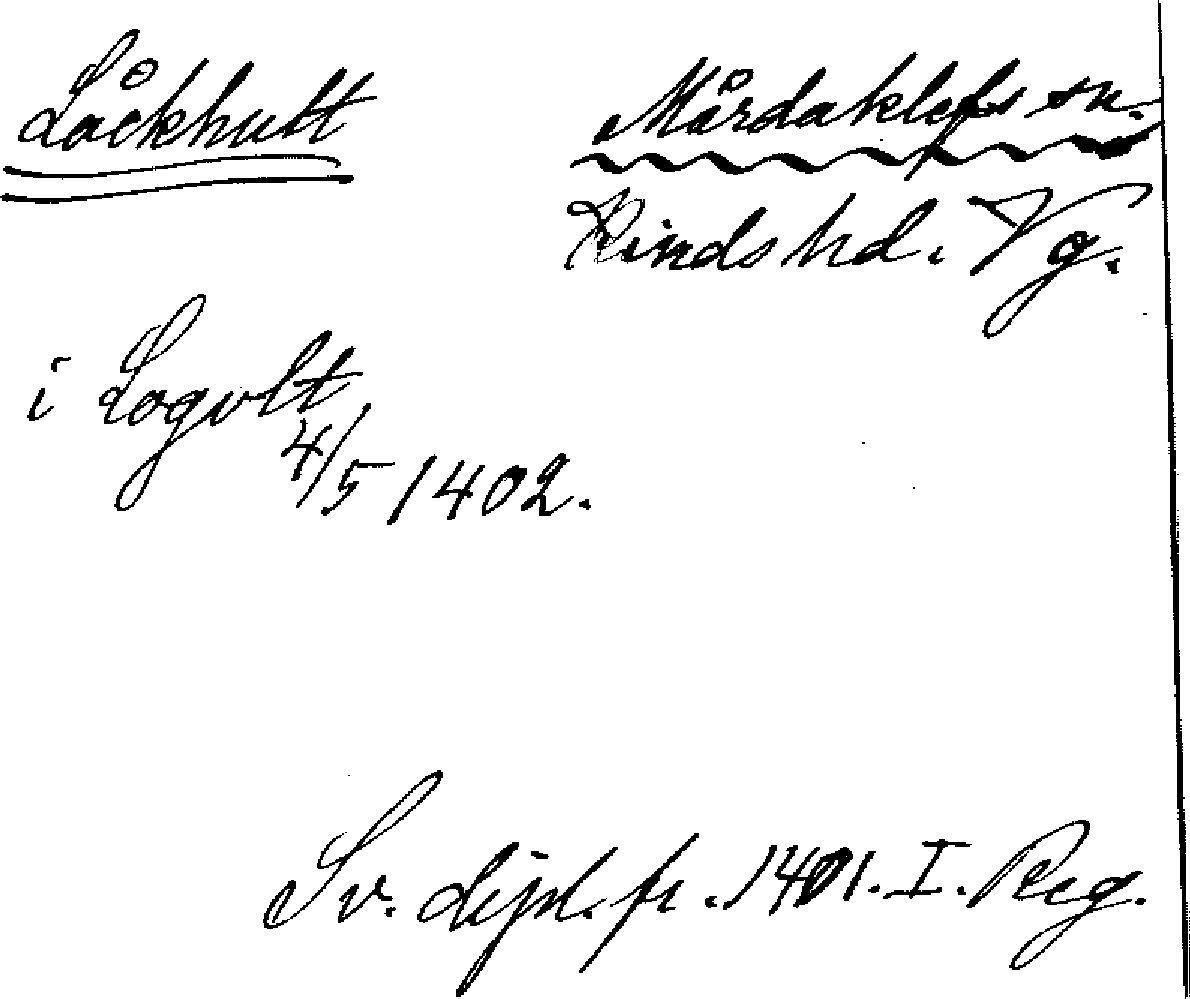 Låckhult
Mårdaklefs sn.
Kinds hd. Vg.
i Logult
4/5 1402.
Sv. dipl. fr. 1401. I. Reg.